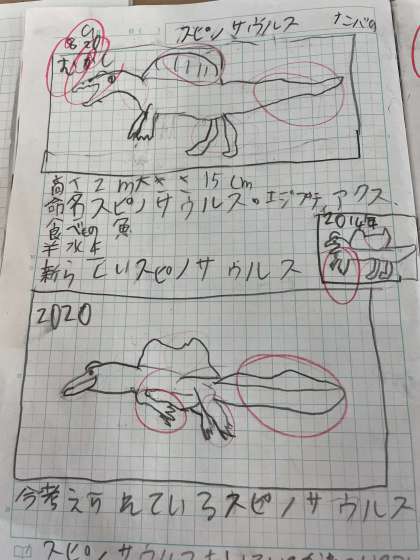 スピノサウルス ナンバ9
むかし
高さ2m大きさ15cm
命名スピノサウルス・エジプティアクス
食べもの 魚
半水生
2014年
新らしいスピノサウルス
2020
今考えられているスピノサウルス